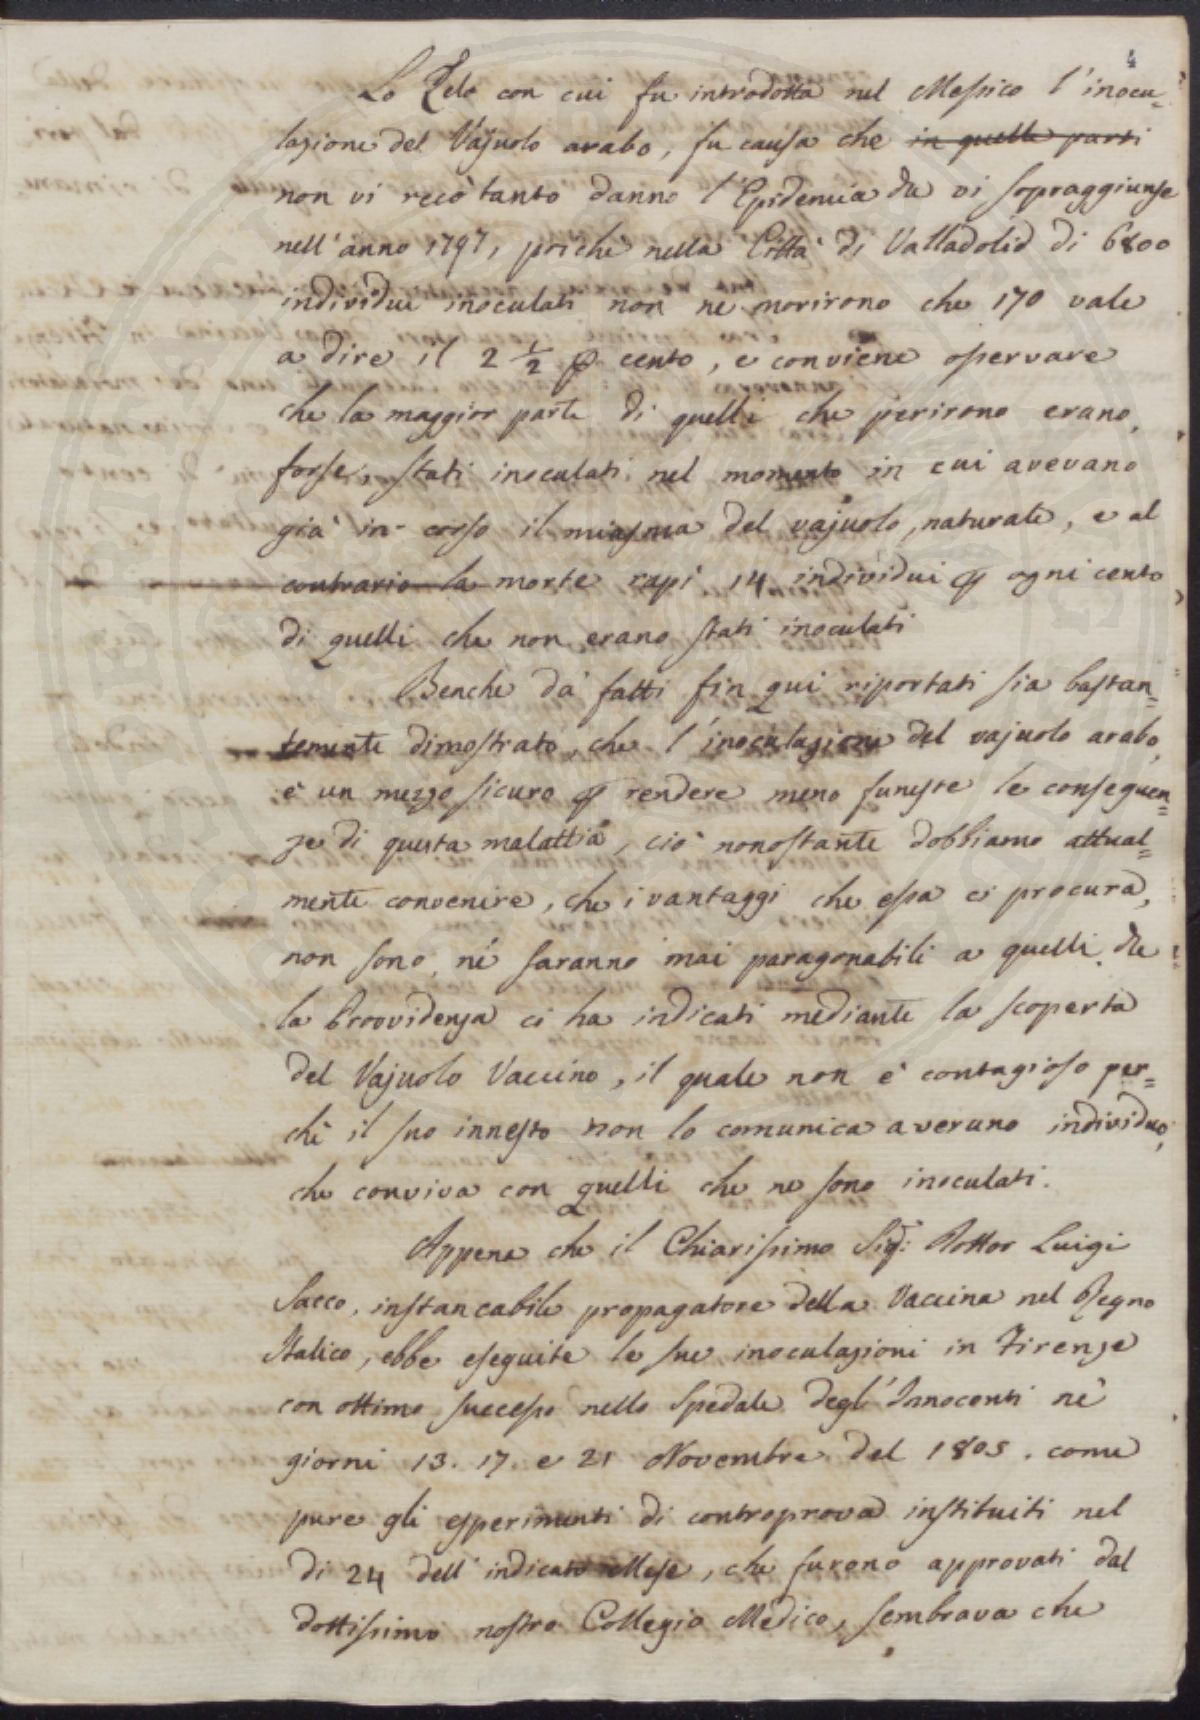 4
Lo Zelo con cui fu introdotta nel Messico l'inocu-
lazione del Vajuolo arabo, fu causa che in quelle parti
non vi recò tanto danno l'Epidemia che vi sopraggiunse
nell'anno 1797, poichè nella Città di Valladolid di 6800
individui inoculati non ne morirono che 170 vale
a dire il 2 1/2 p cento, e conviene osservare
che la maggior parte di quelli che perirono erano,
forse, stati inoculati nel momento in cui avevano
già in corso il miasma del vajuolo naturale, e al
contrario la morte rapì 14 individui p ogni cento
di quelli che non erano stati inoculati
Benchè da' fatti fin qui riportati sia bastan=
temente dimostrato, che l'inoculazione del vajuolo arabo,
è un mezzo sicuro p rendere meno funeste le conseguen=
ze di questa malattia, ciò nonostante dobbiamo attual=
mente convenire, che i vantaggi che essa ci procura,
non sono, nè saranno mai paragonabili a quelli, che
la Provvidenza ci ha indicati mediante la scoperta
del Vajuolo Vaccino, il quale non è contagioso per=
chè il suo innesto non lo comunica a veruno individuo,
che conviva con quelli che ne sono inoculati.
Appena che il Chiarissimo Sig: Dottor Luigi
Sacco, instancabile propagatore della Vaccina nel Regno
Italico, ebbe eseguite le sue inoculazioni in Firenze
con ottimo successo nello Spedale degl'Innocenti nè
giorni 13. 17. e 21 Novembre del 1805. come
pure gli esperimenti di controprova instituiti nel
dì 24 dell'indicato Mese, che furono approvati dal
dottissimo nostro Collegio Medico, sembrava che